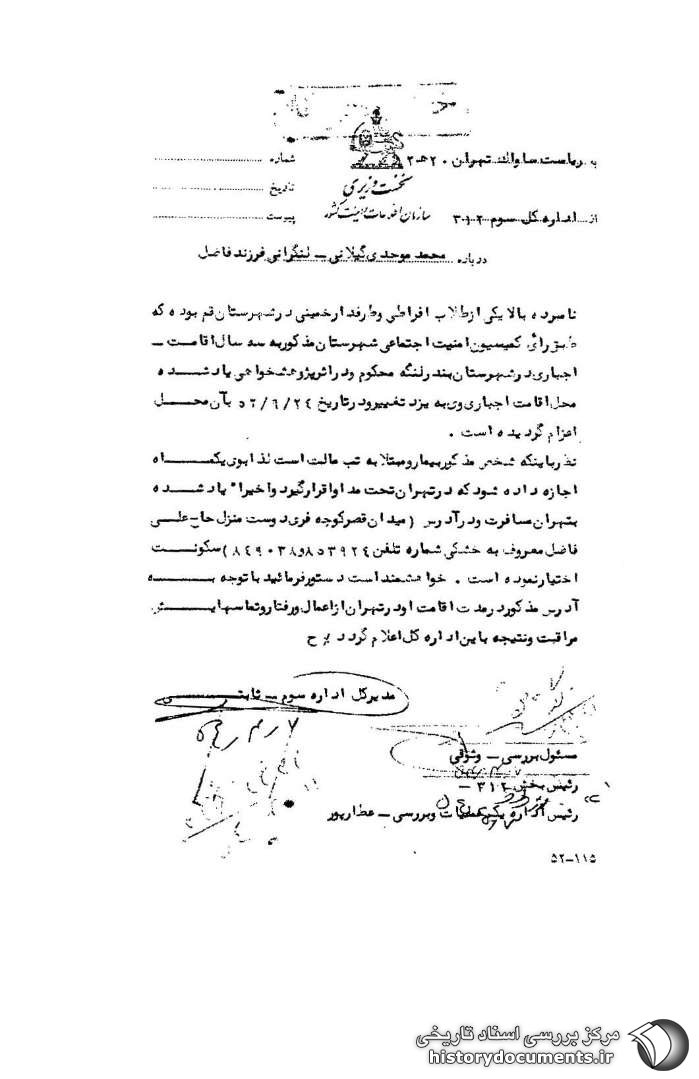 به ریاست ساواک تهران ۲۰ هـ ۲
شماره
نخست وزیری
تاریخ
سازمان اطلاعات و امنیت کشور
از اداره کل سوم ۳۱۲
پیوست
درباره محمد موحدی گیلانی - لنکرانی فرزند فاضل
نامبرده بالا یکی از طلاب افراطی و طرفدار خمینی در شهرستان قم بوده که
طبق رأی کمیسیون امنیت اجتماعی شهرستان مذکور به سه سال اقامت -
اجباری در شهرستان بندرلنگه محکوم و در اثر پژوهشخواهی یاد شده
محل اقامت اجباری وی به یزد تغییر و در تاریخ ۵۲/۶/۲۴ بآن محل
اعزام گردیده است .
نظر باینکه شخص مذکور بیمار و مبتلا به تب مالت است لذا بوی یکماه
اجازه داده شود که در تهران تحت مداوا قرار گیرد و اخیرا" یاد شده
بتهران مسافرت و در آدرس (میدان قصر کوچه فری دوست منزل حاج علی
فاضل معروف به خشکی شماره تلفن ۸۵۳۹۲۴ و ۸۴۹۰۳۸) سکونت
اختیار نموده است . خواهشمند است دستور فرمائید با توجه به
آدرس مذکور در مدت اقامت او در تهران از اعمال و رفتار و تماسهایش
مراقبت و نتیجه باین اداره کل اعلام گردد . ح
مدیر کل اداره سوم - ثابتی
مسئول بررسی - وثوقی
رئیس بخش ۳۱۲ -
رئیس اداره یکم عملیات و بررسی - عطارپور
۵۲-۱۱۵
مرکز بررسی اسناد تاریخی
historydocuments.ir